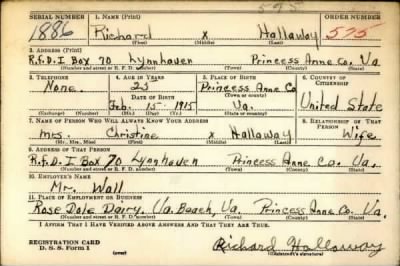 575
SERIAL NUMBER 1. NAME (Print) ORDER NUMBER
1886 Richard x Hallaway 575
(First) (Middle) (Last)
2. ADDRESS (Print)
R.F.D. I Box 70 Lynnhaven Princess Anne Co. Va.
(Number and street or R. F. D. number) (Town) (County) (State)
3. TELEPHONE 4. AGE IN YEARS 5. PLACE OF BIRTH 6. COUNTRY OF CITIZENSHIP
None. 25 Princess Anne Co
DATE OF BIRTH (Town or county)
Feb. 15. 1915 Va. United State
(Exchange) (Number) (Mo.) (Day) (Yr.) (State or country)
7. NAME OF PERSON WHO WILL ALWAYS KNOW YOUR ADDRESS 8. RELATIONSHIP OF THAT PERSON
Mrs Christine x Hallaway Wife
(Mr., Mrs., Miss) (First) (Middle) (Last)
9. ADDRESS OF THAT PERSON
R.F.D. I Box 70 Lynnhaven Princess Anne Co. Va.
(Number and street or R. F. D. number) (Town) (County) (State)
10. EMPLOYER'S NAME
Mr. Wall
11. PLACE OF EMPLOYMENT OR BUSINESS
Rose Dale Dairy, Va. Beach, Va. Princess Anne Co. Va.
(Number and street or R. F. D. number) (Town) (County) (State)
I AFFIRM THAT I HAVE VERIFIED ABOVE ANSWERS AND THAT THEY ARE TRUE.
REGISTRATION CARD
D. S. S. Form 1 (over) Richard Halloway
(Registrant's signature)